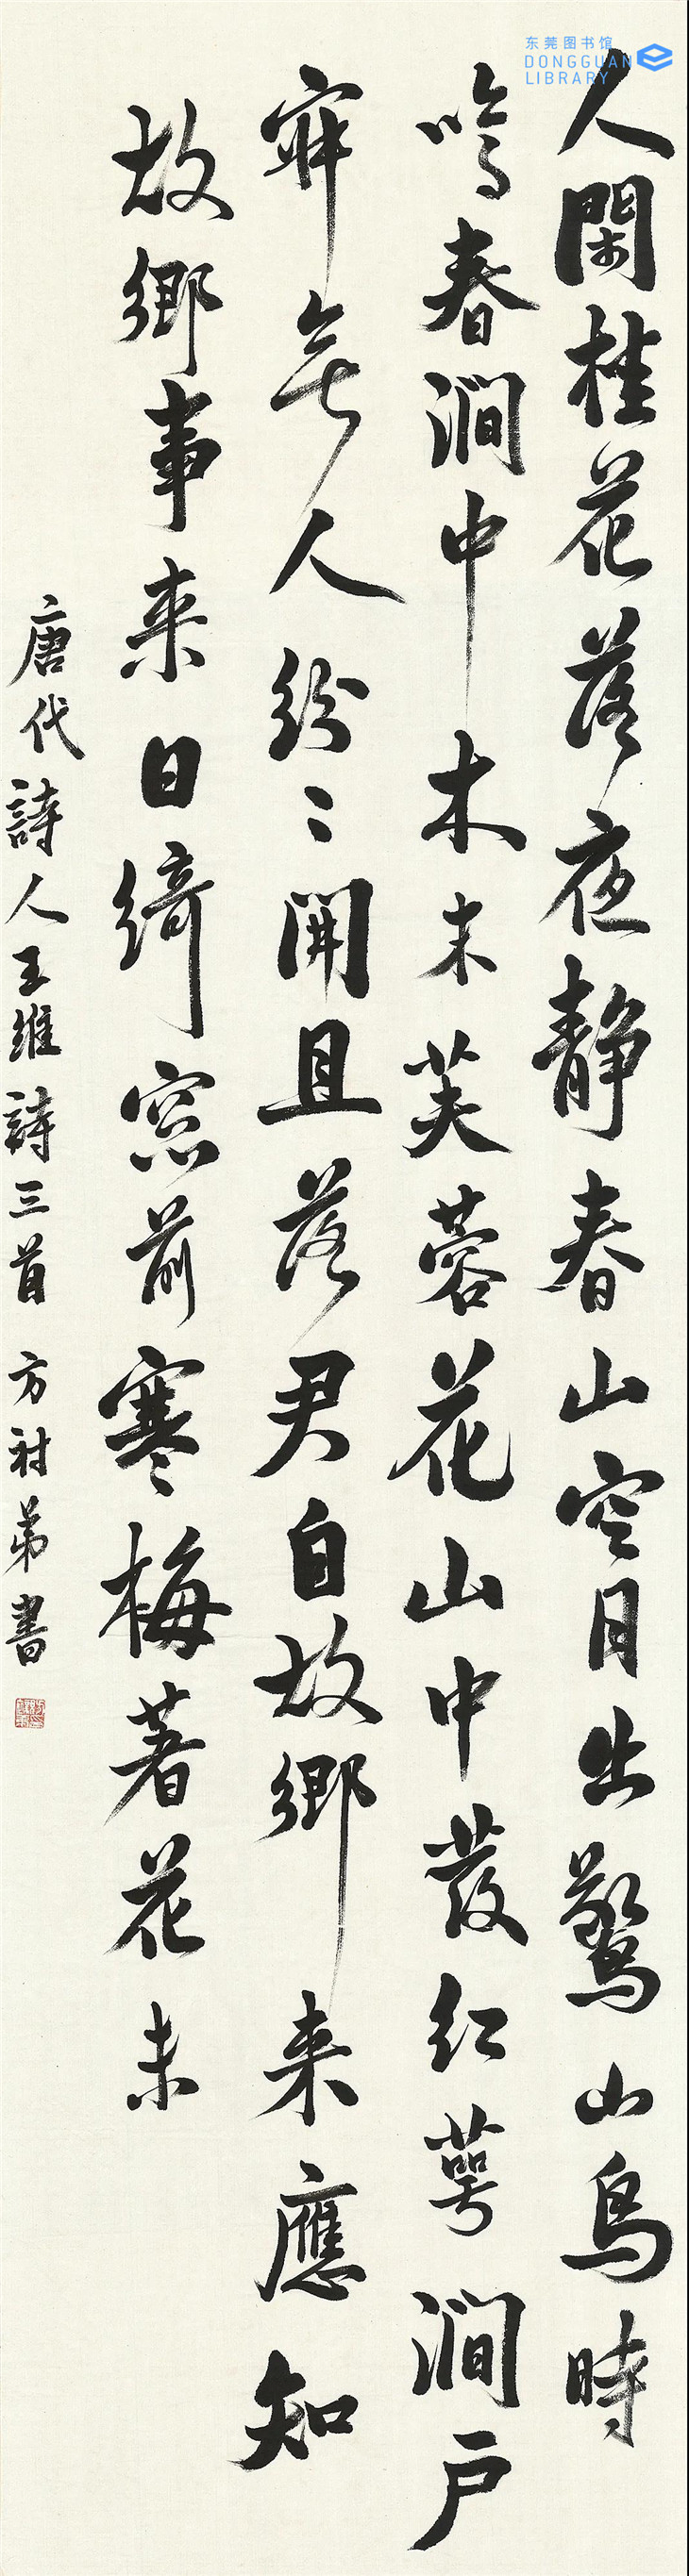 东莞图书馆
DONGGUAN
LIBRARY
人閑桂花落夜静春山空月出驚山鳥時
鳴春澗中木末芙蓉花山中發红萼澗户
寂無人紛〻開且落君自故鄉来應知
故鄉事来日綺窓前寒梅著花未
唐代詩人王維詩三首 方村弟書